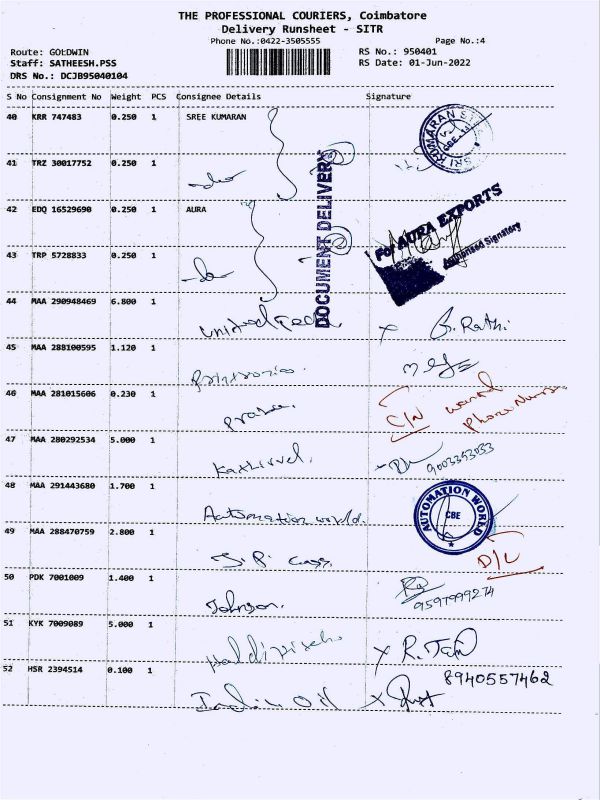 THE PROFESSIONAL COURIERS, Coimbatore
Delivery Runsheet - SITR
Phone No.:0422-3505555
Page No.:4
Route: GOLDWIN
Staff: SATHEESH.PSS
DRS No.: DCJB95040104
RS No.: 950401
RS Date: 01-Jun-2022
S No Consignment No Weight PCS Consignee Details Signature
40 KRR 747483 0.250 1 SREE KUMARAN
SRI KUMARAN
41 TRZ 30017752 0.250 1
DOCUMENT DELIVERY
42 EDQ 16529690 0.250 1 AURA
For AURA EXPORTS
Authorised Signatory
43 TRP 5728833 0.250 1
44 MAA 290948469 6.800 1 x G. Rathi
45 MAA 288100595 1.120 1
46 MAA 281015606 0.230 1 C/N
47 MAA 280292534 5.000 1 Kathirvel. 9003353033
48 MAA 291443680 1.700 1 Automation world.
AUTOMATION WORLD
CBE
49 MAA 288470759 2.800 1 D/L
50 PDK 7001009 1.400 1 Johnson. 9597999274
51 KYK 7009089 5.000 1 x
52 HSR 2394514 0.100 1 Indian Oil x
8940557462